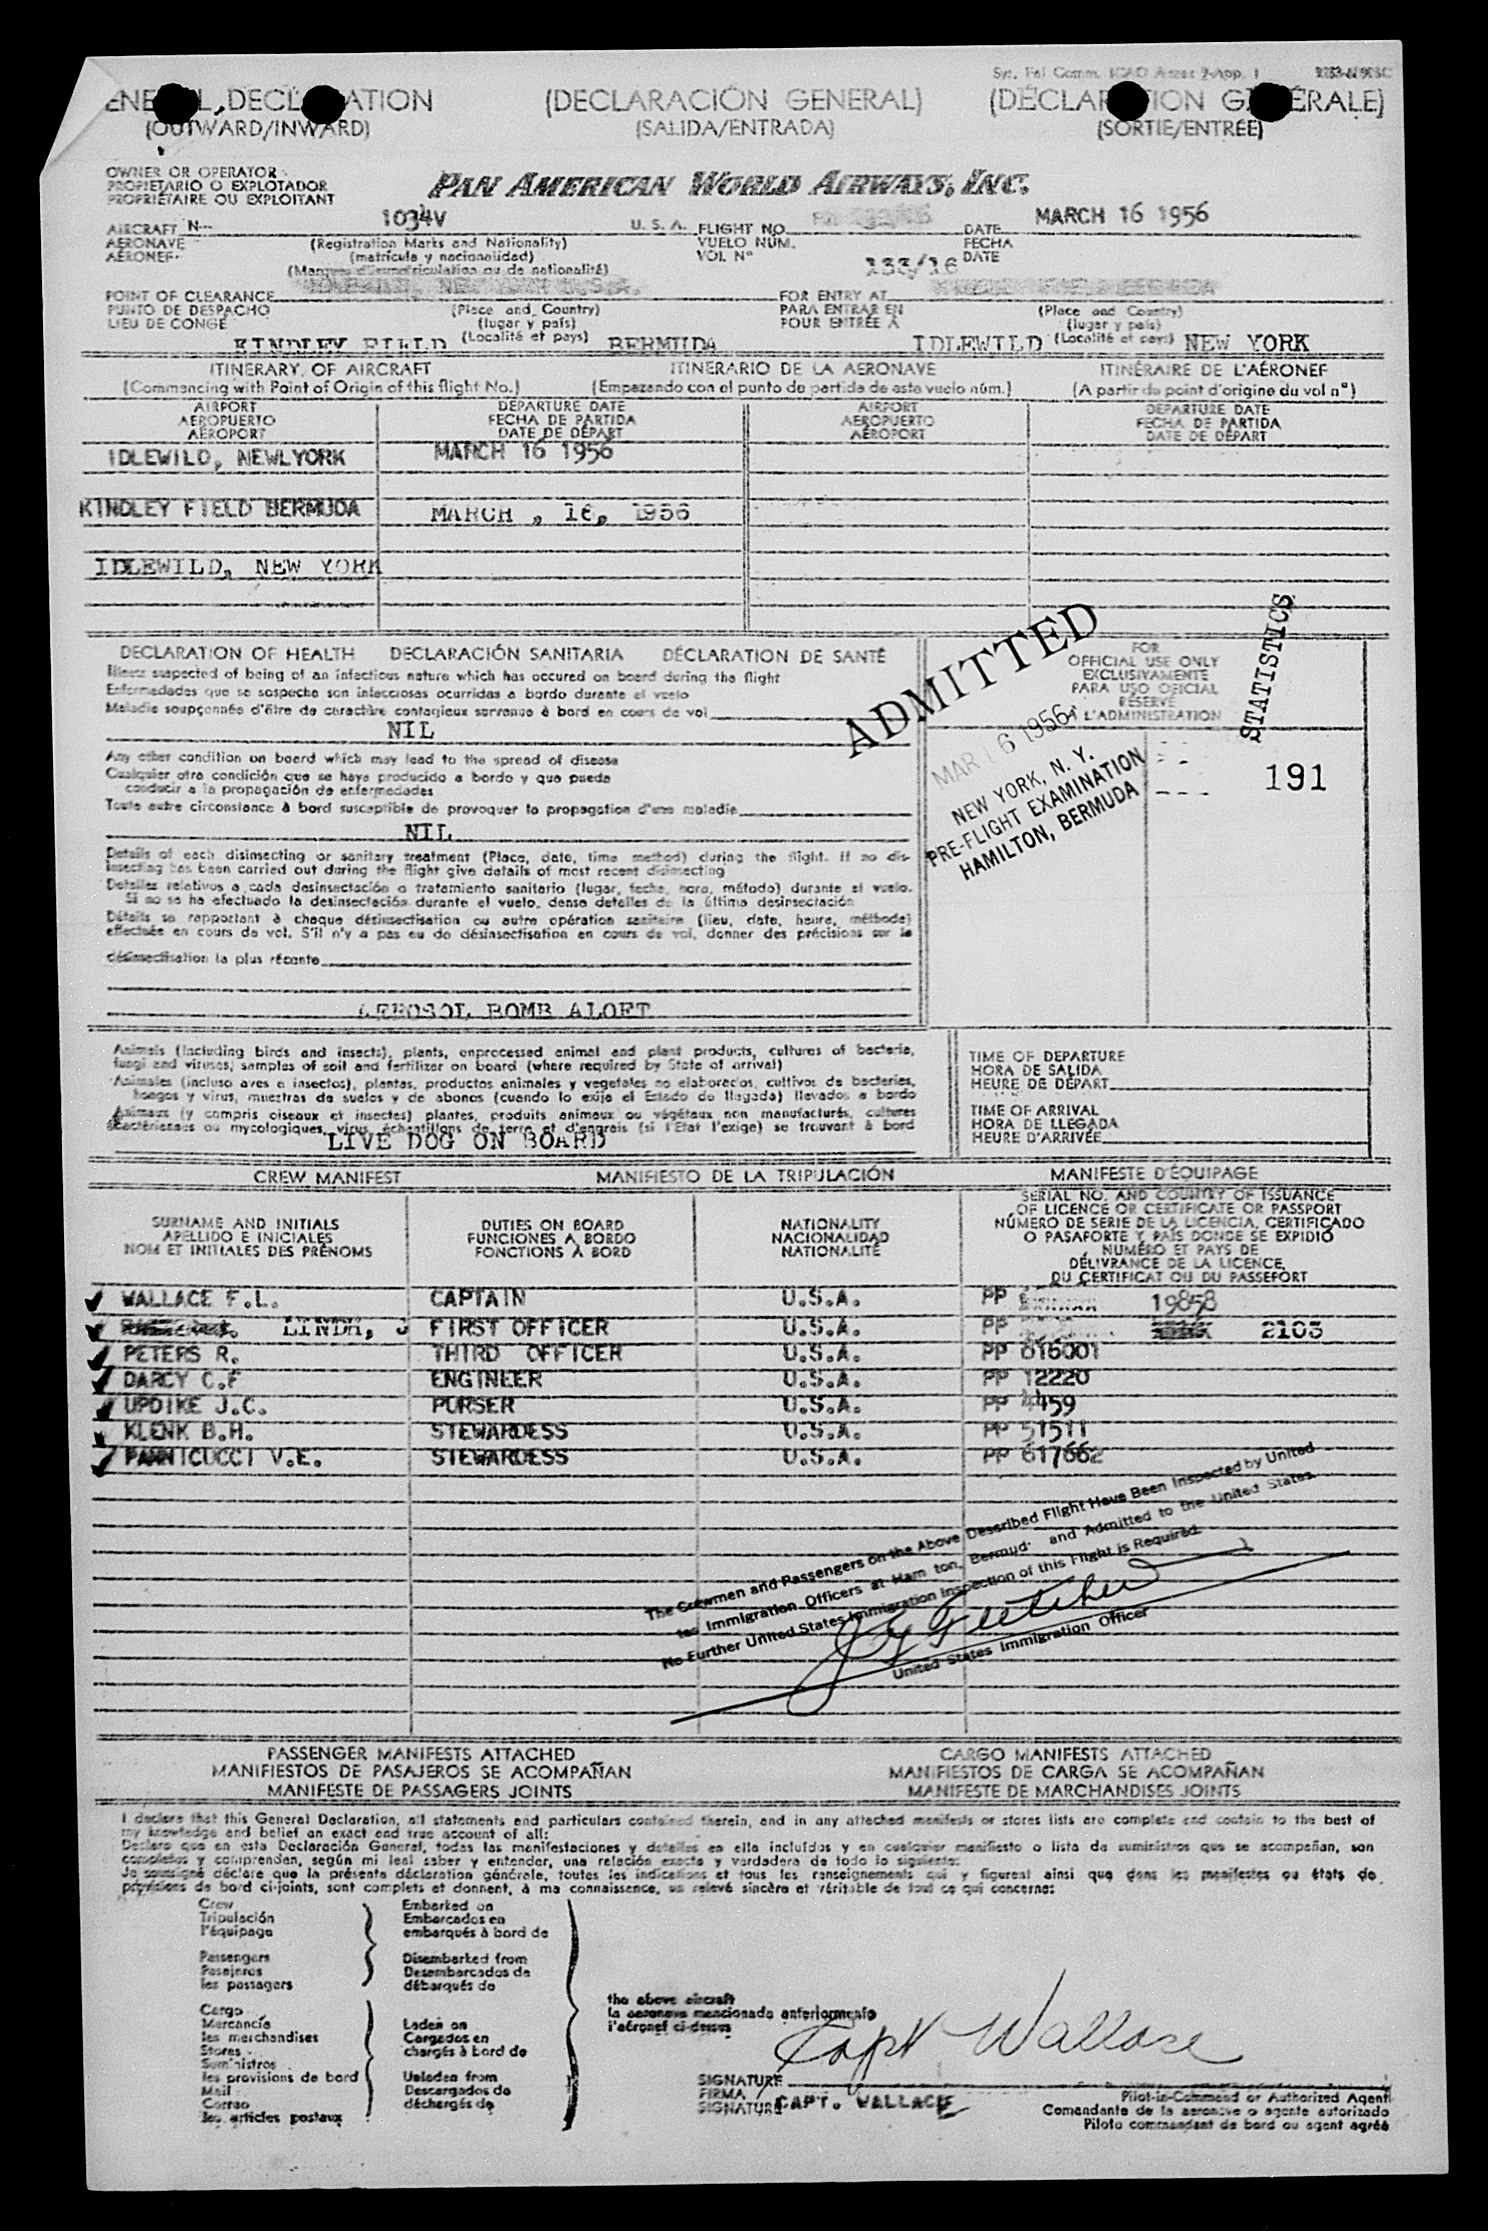 (DECLARACIÓN GENERAL)
(OUTWARD/INWARD) (SALIDA/ENTRADA) (SORTIE/ENTRÉE)
OWNER OR OPERATOR
PROPIETARIO O EXPLOTADOR
PROPRIÉTAIRE OU EXPLOITANT
PAN AMERICAN WORLD AIRWAYS, INC.
AIRCRAFT N 1034V U. S. A. FLIGHT NO. DATE MARCH 16 1956
AERONAVE (Registration Marks and Nationality) VUELO NÚM. FECHA
AÉRONEF (matrícula y nacionalidad) VOL Nº 133/16 DATE
(Marques d'immatriculation ou de nationalité)
POINT OF CLEARANCE FOR ENTRY AT
PUNTO DE DESPACHO (Place and Country) PARA ENTRAR EN (Place and Country)
LIEU DE CONGÉ (lugar y país) POUR ENTRÉE À (lugar y país)
KINDLEY FIELD (Localité et pays) BERMUDA IDLEWILD (Localité et pays) NEW YORK
ITINERARY OF AIRCRAFT ITINERARIO DE LA AERONAVE ITINÉRAIRE DE L'AÉRONEF
(Commencing with Point of Origin of this flight No.) (Empezando con el punto de partida de este vuelo núm.) (A partir du point d'origine du vol nº)
AIRPORT DEPARTURE DATE AIRPORT DEPARTURE DATE
AEROPUERTO FECHA DE PARTIDA AEROPUERTO FECHA DE PARTIDA
AÉROPORT DATE DE DÉPART AÉROPORT DATE DE DÉPART
IDLEWILD, NEWLYORK MARCH 16 1956
KINDLEY FIELD BERMUDA MARCH , 16, 1956
IDLEWILD, NEW YORK
DECLARATION OF HEALTH DECLARACIÓN SANITARIA DÉCLARATION DE SANTÉ
Illness suspected of being of an infectious nature which has occured on board during the flight
Enfermedades que se sospecha son infecciosas ocurridas a bordo durante el vuelo
Maladie soupçonnée d'être de caractère contagieux survenue à bord en cours de vol
NIL
Any other condition on board which may lead to the spread of disease
Cualquier otra condición que se haya producido a bordo y que pueda
conducir a la propagación de enfermedades
Toute autre circonstance à bord susceptible de provoquer la propagation d'une maladie
NIL
Details of each disinsecting or sanitary treatment (Place, date, time method) during the flight. If no dis-
insecting has been carried out during the flight give details of most recent disinsecting
Detalles relativos a cada desinsectación o tratamiento sanitario (lugar, fecha, hora, método) durante el vuelo.
Si no se ha efectuado la desinsectación durante el vuelo, dense detalles de la última desinsectación
Détails se rapportant à chaque désinsectisation ou autre opération sanitaire (lieu, date, heure, méthode)
effectuée en cours de vol. S'il n'y a pas eu de désinsectisation en cours de vol, donner des précisions sur la
désinsectisation la plus récente
AEROSOL BOMB ALOFT
FOR
OFFICIAL USE ONLY
EXCLUSIVAMENTE
PARA USO OFICIAL
RÉSERVÉ
À L'ADMINISTRATION
ADMITTED
MAR 16 1956
NEW YORK, N. Y.
PRE-FLIGHT EXAMINATION
HAMILTON, BERMUDA
STATISTICS
191
Animals (including birds and insects), plants, unprocessed animal and plant products, cultures of bacteria,
fungi and viruses, samples of soil and fertilizer on board (where required by State of arrival)
Animales (incluso aves e insectos), plantas, productos animales y vegetales no elaborados, cultivos de bacterias,
hongos y virus, muestras de suelos y de abonos (cuando lo exija el Estado de llegada) llevados a bordo
Animaux (y compris oiseaux et insectes) plantes, produits animaux ou végétaux non manufacturés, cultures
bactériennes ou mycologiques, virus, échantillons de terre et d'engrais (si l'Etat l'exige) se trouvant à bord
LIVE DOG ON BOARD
TIME OF DEPARTURE
HORA DE SALIDA
HEURE DE DÉPART
TIME OF ARRIVAL
HORA DE LLEGADA
HEURE D'ARRIVÉE
CREW MANIFEST MANIFIESTO DE LA TRIPULACIÓN MANIFESTE D'ÉQUIPAGE
SURNAME AND INITIALS
APELLIDO E INICIALES
NOM ET INITIALES DES PRÉNOMS
DUTIES ON BOARD
FUNCIONES A BORDO
FONCTIONS À BORD
NATIONALITY
NACIONALIDAD
NATIONALITÉ
SERIAL NO. AND COUNTRY OF ISSUANCE
OF LICENCE OR CERTIFICATE OR PASSPORT
NÚMERO DE SERIE DE LA LICENCIA, CERTIFICADO
O PASAPORTE Y PAÍS DONDE SE EXPIDIÓ
NUMÉRO ET PAYS DE
DÉLIVRANCE DE LA LICENCE,
DU CERTIFICAT OU DU PASSEPORT
WALLACE F.L. CAPTAIN U.S.A. PP 19858
LINDH, J FIRST OFFICER U.S.A. PP 2103
PETERS R. THIRD OFFICER U.S.A. PP 616001
DARCY C.F ENGINEER U.S.A. PP 12220
UPDIKE J.C. PURSER U.S.A. PP 4459
KLENK B.H. STEWARDESS U.S.A. PP 51511
PANNICUCCI V.E. STEWARDESS U.S.A. PP 617662
The Crewmen and Passengers on the Above Described Flight Have Been Inspected by United
tes Immigration Officers at Ham ton, Bermud and Admitted to the United States.
No Further United States Immigration Inspection of this Flight is Required.
United States Immigration Officer
PASSENGER MANIFESTS ATTACHED CARGO MANIFESTS ATTACHED
MANIFIESTOS DE PASAJEROS SE ACOMPAÑAN MANIFIESTOS DE CARGA SE ACOMPAÑAN
MANIFESTE DE PASSAGERS JOINTS MANIFESTE DE MARCHANDISES JOINTS
I declare that this General Declaration, all statements and particulars contained therein, and in any attached manifests or stores lists are complete and contain to the best of
my knowledge and belief an exact and true account of all:
Declaro que en esta Declaración General, todas las manifestaciones y detalles en ella incluídos y en cualquier manifiesto o lista de suministros que se acompañan, son
completos y comprenden, según mi leal saber y entender, una relación exacta y verdadera de todo lo siguiente:
Je soussigné déclare que la présente déclaration générale, toutes les indications et tous les renseignements qui y figurent ainsi que dans les manifestes ou états de
provisions de bord ci-joints, sont complets et donnent, à ma connaissance, un relevé sincère et véritable de tout ce qui concerne:
Crew
Tripulación
l'équipage
Passengers
Pasajeros
les passagers
Cargo
Mercancía
les marchandises
Stores
Suministros
les provisions de bord
Mail
Correo
les articles postaux
Embarked on
Embarcados en
embarqués à bord de
Disembarked from
Desembarcados de
débarqués de
Laden on
Cargados en
chargés à bord de
Unladen from
Descargados de
déchargés de
the above aircraft
la aeronave mencionada anteriormente
l'aéronef ci-dessus
Capt Wallace
SIGNATURE
FIRMA
SIGNATURE CAPT. WALLACE
Pilot-in-Command or Authorized Agent
Comandante de la aeronave o agente autorizado
Pilote commandant de bord ou agent agréé